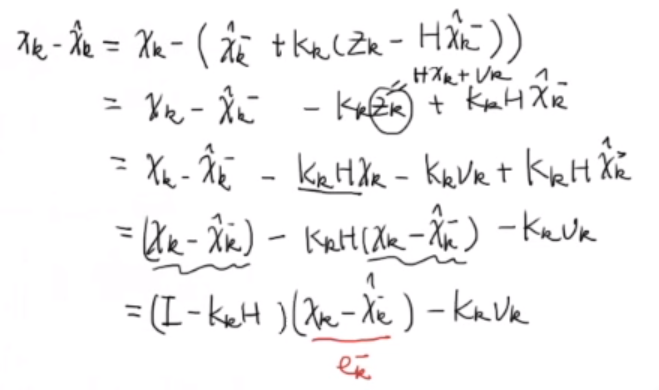 xₖ - x̂ₖ = xₖ - ( x̂ₖ⁻ + Kₖ(Zₖ - Hx̂ₖ⁻))
Hxₖ + Vₖ
= xₖ - x̂ₖ⁻ - KₖZₖ + KₖHx̂ₖ⁻
= xₖ - x̂ₖ⁻ - KₖHxₖ - KₖVₖ + KₖHx̂ₖ⁻
= (xₖ - x̂ₖ⁻) - KₖH(xₖ - x̂ₖ⁻) - KₖVₖ
= (I - KₖH)(xₖ - x̂ₖ⁻) - KₖVₖ
eₖ⁻